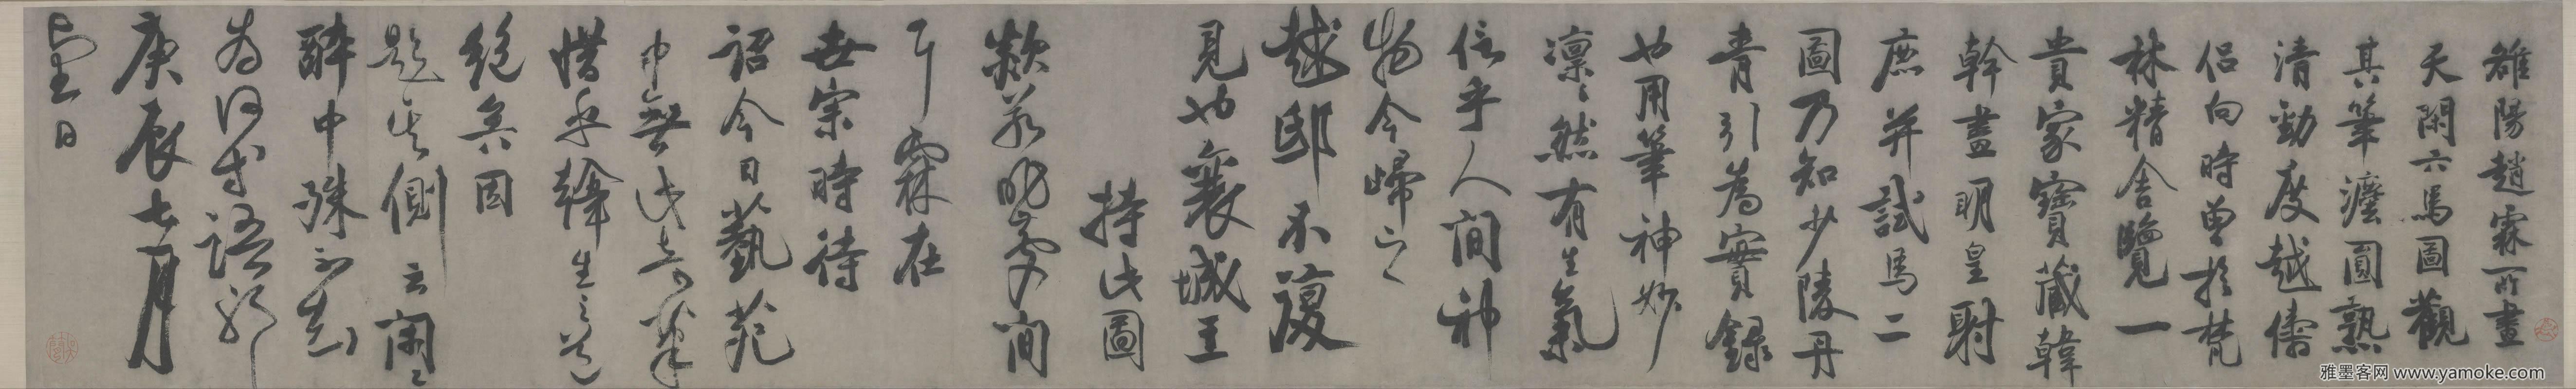 雒陽趙霖所畫
天閑六馬圖觀
其筆濃圓熟
清勁度越儕
侶向時曾於梵
林精舍覽一
貴家寶藏韓
幹畫明皇射
鹿并試馬二
圖乃知少陵丹
青引為實錄
也用筆神妙
凜凜然有生氣
信乎人間神
物今歸之
越邸不復
見也襄城王
持此圖
欺茗眺寥間
耳霖在
世宗時待
詔今日藝苑
中無此奇筆
惜乎韓生之道
絕矣因
題其側云閑閑
醉中殊不知
為何等語耶
庚辰七月
望日
雅墨客网 www.yamoke.com